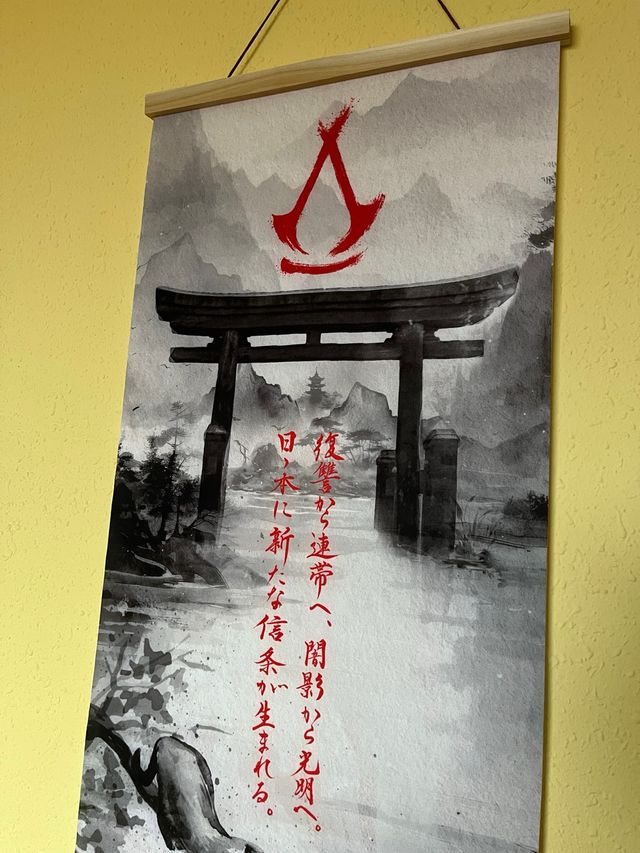 復讐から連帯へ、闇影から光明へ。
日ノ本に新たな信条が生まれる。